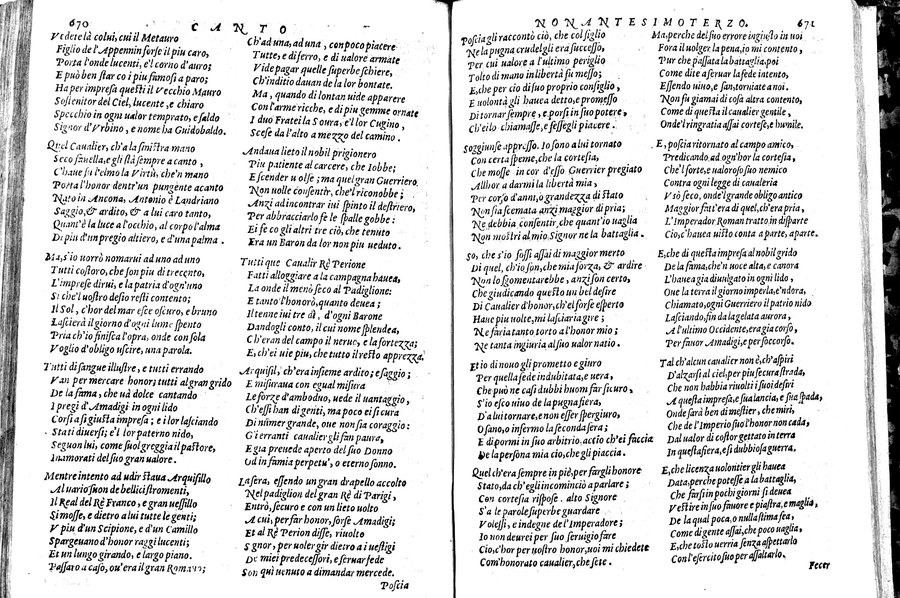 670 CANTO
Vedete là colui, cui il Metauro
Figlio de l'Appennin forse il piu caro,
Porta l'onde lucenti, e'l corno d'auro;
E può ben star co i piu famosi a paro;
Ha per impresa questi il Vecchio Mauro
Sostenitor del Ciel, lucente, e chiaro
Specchio in ogni ualor temprato, e saldo
Signor d'Vrbino, e nome ha Guidobaldo.
Quel Caualier, ch'a la sinistra mano
Seco fauella, e gli stà sempre a canto,
C'haue su l'elmo la Virtù, che'n mano
Porta l'honor dentr'un pungente acanto
Nato in Ancona, Antonio è Landriano
Saggio, & ardito, & a lui caro tanto,
Quant'è la luce a l'occhio, al corpo l'alma
Di piu d'un pregio altiero, e d'una palma.
Ma, s'io uorrò nomarui ad uno ad uno
Tutti costoro, che son piu di trecento,
L'imprese dirui, e la patria d'ogn'uno
Si che'l uostro desio resti contento;
Il Sol, c'hor del mar esce oscuro, e bruno
Lascierà il giorno d'ogni lume spento
Pria ch'io finisca l'opra, onde con sola
Voglio d'obligo uscire, una parola.
Tutti di sangue illustre, e tutti errando
Van per mercare honor; tutti al gran grido
De la fama, che uà dolce cantando
I pregi d'Amadigi in ogni lido
Corsi a sì giusta impresa; e i lor lasciando
Stati diuersi; e'l lor paterno nido,
Seguon lui, come suol greggia il pastore,
Inamorati del suo gran ualore.
Mentre intento ad udir staua Arquisillo
Al uario suon de bellici stromenti,
Il Real del Rè Franco, e gran uessillo
Si mosse, e dietro a lui tutte le genti;
V piu d'un Scipione, e d'un Camillo
Spargeuano d'honor raggi lucenti;
Et un lungo girando, e largo piano.
Passaro a caso, ou'era il gran Romano;
Ch'ad una, ad una, con poco piacere
Tutte, e di ferro, e di ualore armate
Vide pagar quelle superbe schiere,
Ch'inditio dauan de la lor bontate.
Ma, quando di lontan uide apparere
Con l'arme ricche, e di piu gemme ornate
I duo Frati la Soura, e'l lor Cugino,
Scese da l'alto a mezzo del camino.
Andaua lieto il nobil prigionero
Piu patiente al carcere, che Iobbe;
E scender u olse; ma quel gran Guerriero
Non uolle consentir, che'l riconobbe;
Anzi ad incontrar iui spinto il destriero,
Per abbracciarlo fe le spalle gobbe:
Ei fe co gli altri tre ciò, che tenuto
Era un Baron da lor non piu ueduto.
Tutti que Caualir Rè Perione
Fatti alloggiare a la campagna hauea,
La onde il menò seco al Padiglione:
E tanto l'honorò, quanto deuea;
Il tenne iui tre dì, d'ogni Barone
Dandogli conto, il cui nome splendea,
Ch'eran del campo il neruo, e la fortezza;
E, ch'ei uie piu, che tutto il resto apprezza.
Arquisil, ch'era insieme ardito; e saggio;
E misuraua con egual misura
Le forze d'amboduo, uede il uantaggio,
Ch'essi han di genti, ma poco ei si cura
Di numer grande, oue non sia coraggio:
G'i erranti caualier gli fan paura,
E già preuede aperto del suo Donno
Od infamia perpetu', o eterno sonno.
La sera, essendo un gran drapello accolto
Nel padiglion del gran Rè di Parigi,
Entrò, securo e con un lieto uolto
A cui, per far honor, sorse Amadigi;
Et al Rè Perion disse, riuolto
Signor, per uolergir dietro a i uestigi
De miei predecessori, e seruar fede
Son qui uenuto a dimandar mercede.
Poscia
NONANTESIMOTERZO. 671
Poscia gli raccontò ciò, che col figlio
Ne la pugna crudel gli era successo,
Per cui ualore a l'ultimo periglio
Tolto di mano in libertà fu messo;
E, che per ciò di suo proprio consiglio,
E uolontà gli hauea detto, e promesso
Di tornar sempre, e porsi in suo potere,
Ch'ei lo chiamasse, e fessegli piacere.
Soggiunse appresso. Io sono a lui tornato
Con certa speme, che la cortesia,
Che mosse in cor d'esso Guerrier pregiato
Allhor a darmi la libertà mia,
Per corso d'anni, o grandezza di stato
Non sia scemata anzi maggior di pria;
Ne debbia consentir, che quant'io uaglia
Non mostri al mio Signor ne la battaglia.
So, che s'io fossi assai di maggior merto
Di quel, ch'io son, che mia forza, & ardire
Non lo sgomentarebbe, anzi son certo,
Che giudicando questo un bel desire
Di Caualier d'honor, ch'ei forse esperto
Haue piu uolte, mi lasciaria gire;
Ne faria tanto torto a l'honor mio;
Ne tanta ingiuria al suo ualor natio.
Et io di nouo gli prometto e giuro
Per quella fede indubitata, e uera,
Che può ne casi dubbi huom far sicuro,
S'io esco uiuo de la pugna fiera,
D'a lui tornare, e non esser spergiuro,
O sano, o infermo la seconda sera;
E di pormi in suo arbitrio, acciò ch'ei faccia
De la persona mia ciò, che gli piaccia.
Quel ch'era sempre in piè, per fargli honore
Stato, da ch'egli incominciò a parlare;
Con cortesia rispose. alto Signore
S'a le parole superbe guardare
Volessi, e indegne de l'Imperadore;
Io non deurei per suo seruigio fare
Ciò, c'hor per uostro honor, uoi mi chiedete
Com'honorato caualier, che sete.
Ma, perche del suo errore ingiusto in uoi
Fora il uolger la pena, in mi contento,
Pur che passata la battaglia, poi
Come dite a seruar la fede intento,
Essendo uiuo, e san, torniate a noi.
Non fu giamai di cosa altra contento,
Come di questa il caualier gentile,
Onde'l ringratia assai cortese, e humile.
E, poscia ritornato al campo amico,
Predicando, ad ogn'hor la cortesia,
Che'l forte, e ualoroso suo nemico
Contra ogni legge di caualeria
Vsò seco, onde'l grande obligo antico
Maggior fatt'era di quel, ch'era pria,
L'Imperador Roman tratto in disparte
Ciò, c'hauea uisto conta a parte, a parte.
E, che di questa impresa al nobil grido
De la fama, che'n uoce alta, e canora
L'hauea già diuulgato in ogni lido,
Oue la terra il giorno imperla, e'ndora,
Chiamato, ogni Guerriero il patrio nido
Lasciando, fin da la gelata aurora,
A l'ultimo Occidente, era gia corso,
Per fauor Amadigi, e per soccorso.
Tal ch'alcun caualier non è, ch'aspiri
D'alzarsi al ciel, per piu secura strada,
Che non habbia riuolti i suoi desiri
A questa impresa, e sua lancia, e sua spada,
Onde sarà ben di mestier, che miri,
Che de l'Imperio suo l'honor non cada,
Dal ualor di costor gettato in terra
In questa fiera, e sì dubbiosa guerra.
E, che licenza uolontier gli hauea
Data, perche potesse a la battaglia,
Che farsi in pochi giorni si deuea
Vestire in suo fauore e piastra, e maglia,
De la qual poca, o nulla stima fea,
Come di gente assai, che poco uaglia,
E, che tosto uerria senza aspettarlo
Con l'esercito suo per assaltarlo.
Fecer